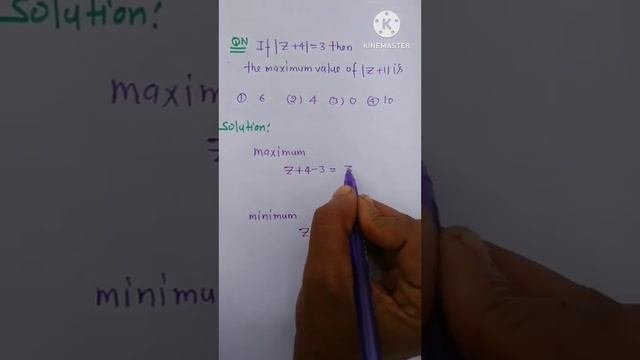 Solution:
KINEMASTER
QN If |Z+4|=3 then
the maximum value of |Z+1| is
① 6 (2) 4 (3) 0 ④ 10
Solution:
maximum
maximum
Z+4-3 = Z
minimum
Z
minimum